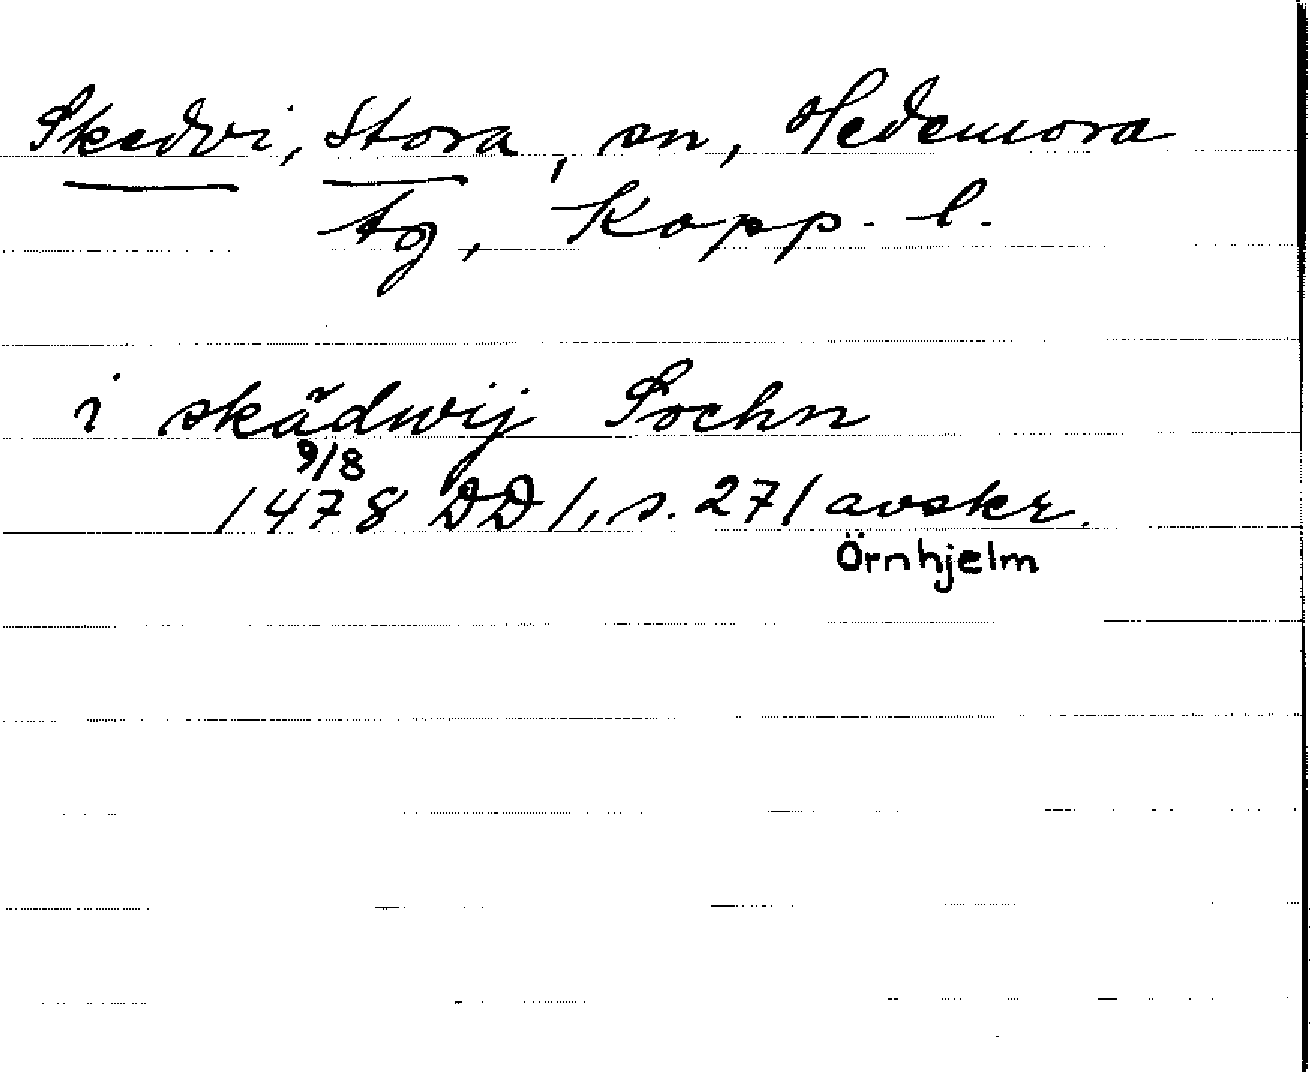 Skedvi, Stora, sn, Hedemora
tg, Kopp. l.
i skädwij Sochn
9/8
1478 DD 1, s. 271 avskr.
Örnhjelm